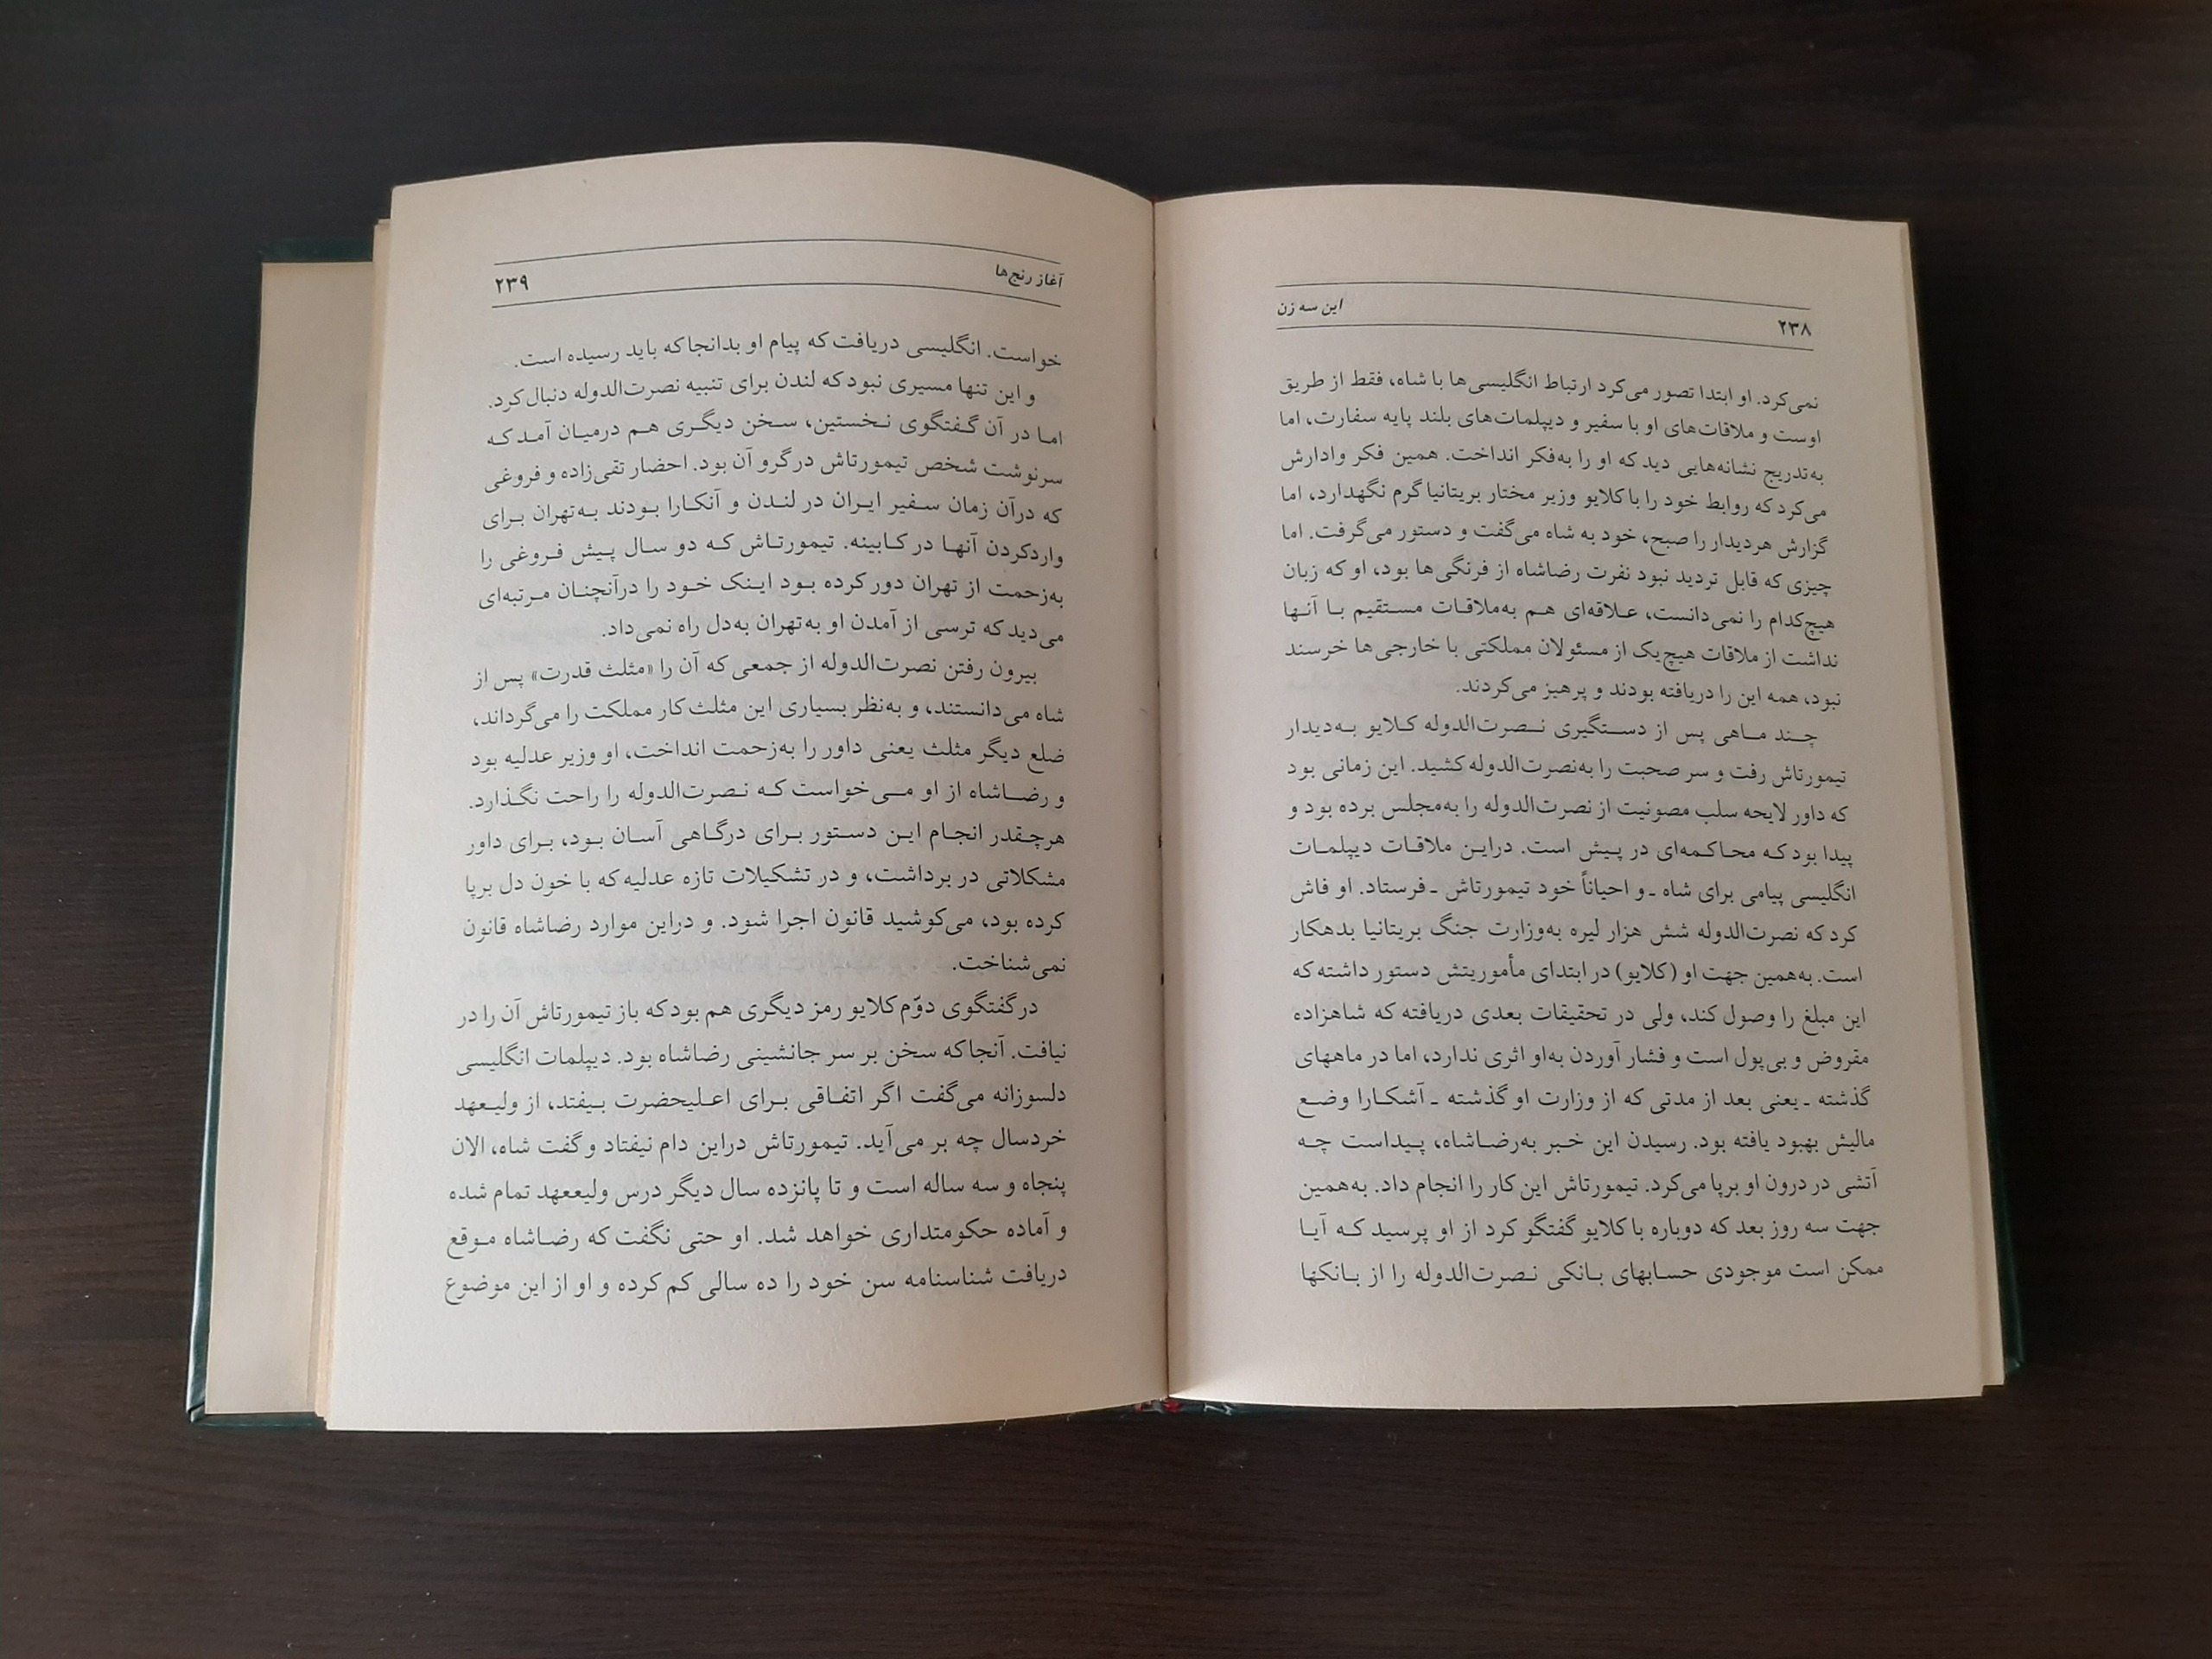 ۲۳۸
این سه زن
نمی‌کرد. او ابتدا تصور می‌کرد ارتباط انگلیسی‌ها با شاه، فقط از طریق
اوست و ملاقات‌های او با سفیر و دیپلمات‌های بلند پایه سفارت، اما
به‌تدریج نشانه‌هایی دید که او را به‌فکر انداخت. همین فکر وادارش
می‌کرد که روابط خود را با کلایو وزیر مختار بریتانیا گرم نگهدارد، اما
گزارش هردیدار را صبح، خود به شاه می‌گفت و دستور می‌گرفت. اما
چیزی که قابل تردید نبود نفرت رضاشاه از فرنگی‌ها بود، او که زبان
هیچ‌کدام را نمی‌دانست، علاقه‌ای هم به‌ملاقات مستقیم با آنها
نداشت از ملاقات هیچ‌یک از مسئولان مملکتی با خارجی‌ها خرسند
نبود، همه این را دریافته بودند و پرهیز می‌کردند.
چند ماهی پس از دستگیری نصرت‌الدوله کلایو به‌دیدار
تیمورتاش رفت و سر صحبت را به‌نصرت‌الدوله کشید. این زمانی بود
که داور لایحه سلب مصونیت از نصرت‌الدوله را به‌مجلس برده بود و
پیدا بود که محاکمه‌ای در پیش است. دراین ملاقات دیپلمات
انگلیسی پیامی برای شاه ـ و احیاناً خود تیمورتاش ـ فرستاد. او فاش
کرد که نصرت‌الدوله شش هزار لیره به‌وزارت جنگ بریتانیا بدهکار
است. به‌همین جهت او (کلایو) در ابتدای مأموریتش دستور داشته که
این مبلغ را وصول کند، ولی در تحقیقات بعدی دریافته که شاهزاده
مقروض و بی‌پول است و فشار آوردن به‌او اثری ندارد، اما در ماههای
گذشته ـ یعنی بعد از مدتی که از وزارت او گذشته ـ آشکارا وضع
مالیش بهبود یافته بود. رسیدن این خبر به‌رضاشاه، پیداست چه
آتشی در درون او برپا می‌کرد. تیمورتاش این کار را انجام داد. به‌همین
جهت سه روز بعد که دوباره با کلایو گفتگو کرد از او پرسید که آیا
ممکن است موجودی حسابهای بانکی نصرت‌الدوله را از بانکها
آغاز رنج‌ها
۲۳۹
خواست. انگلیسی دریافت که پیام او بدانجا که باید رسیده است.
و این تنها مسیری نبود که لندن برای تنبیه نصرت‌الدوله دنبال کرد.
اما در آن گفتگوی نخستین، سخن دیگری هم درمیان آمد که
سرنوشت شخص تیمورتاش درگرو آن بود. احضار تقی‌زاده و فروغی
که درآن زمان سفیر ایران در لندن و آنکارا بودند به‌تهران برای
واردکردن آنها در کابینه. تیمورتاش که دو سال پیش فروغی را
به‌زحمت از تهران دور کرده بود اینک خود را درآنچنان مرتبه‌ای
می‌دید که ترسی از آمدن او به‌تهران به‌دل راه نمی‌داد.
بیرون رفتن نصرت‌الدوله از جمعی که آن را «مثلث قدرت» پس از
شاه می‌دانستند، و به‌نظر بسیاری این مثلث کار مملکت را می‌گرداند،
ضلع دیگر مثلث یعنی داور را به‌زحمت انداخت، او وزیر عدلیه بود
و رضاشاه از او می‌خواست که نصرت‌الدوله را راحت نگذارد.
هرچقدر انجام این دستور برای درگاهی آسان بود، برای داور
مشکلاتی در برداشت، و در تشکیلات تازه عدلیه که با خون دل برپا
کرده بود، می‌کوشید قانون اجرا شود. و دراین موارد رضاشاه قانون
نمی‌شناخت.
در گفتگوی دوّم کلایو رمز دیگری هم بود که باز تیمورتاش آن را در
نیافت. آنجا که سخن بر سر جانشینی رضاشاه بود. دیپلمات انگلیسی
دلسوزانه می‌گفت اگر اتفاقی برای اعلیحضرت بیفتد، از ولیعهد
خردسال چه بر می‌آید. تیمورتاش دراین دام نیفتاد و گفت شاه، الان
پنجاه و سه ساله است و تا پانزده سال دیگر درس ولیعهد تمام شده
و آماده حکومتداری خواهد شد. او حتی نگفت که رضاشاه موقع
دریافت شناسنامه سن خود را ده سالی کم کرده و او از این موضوع